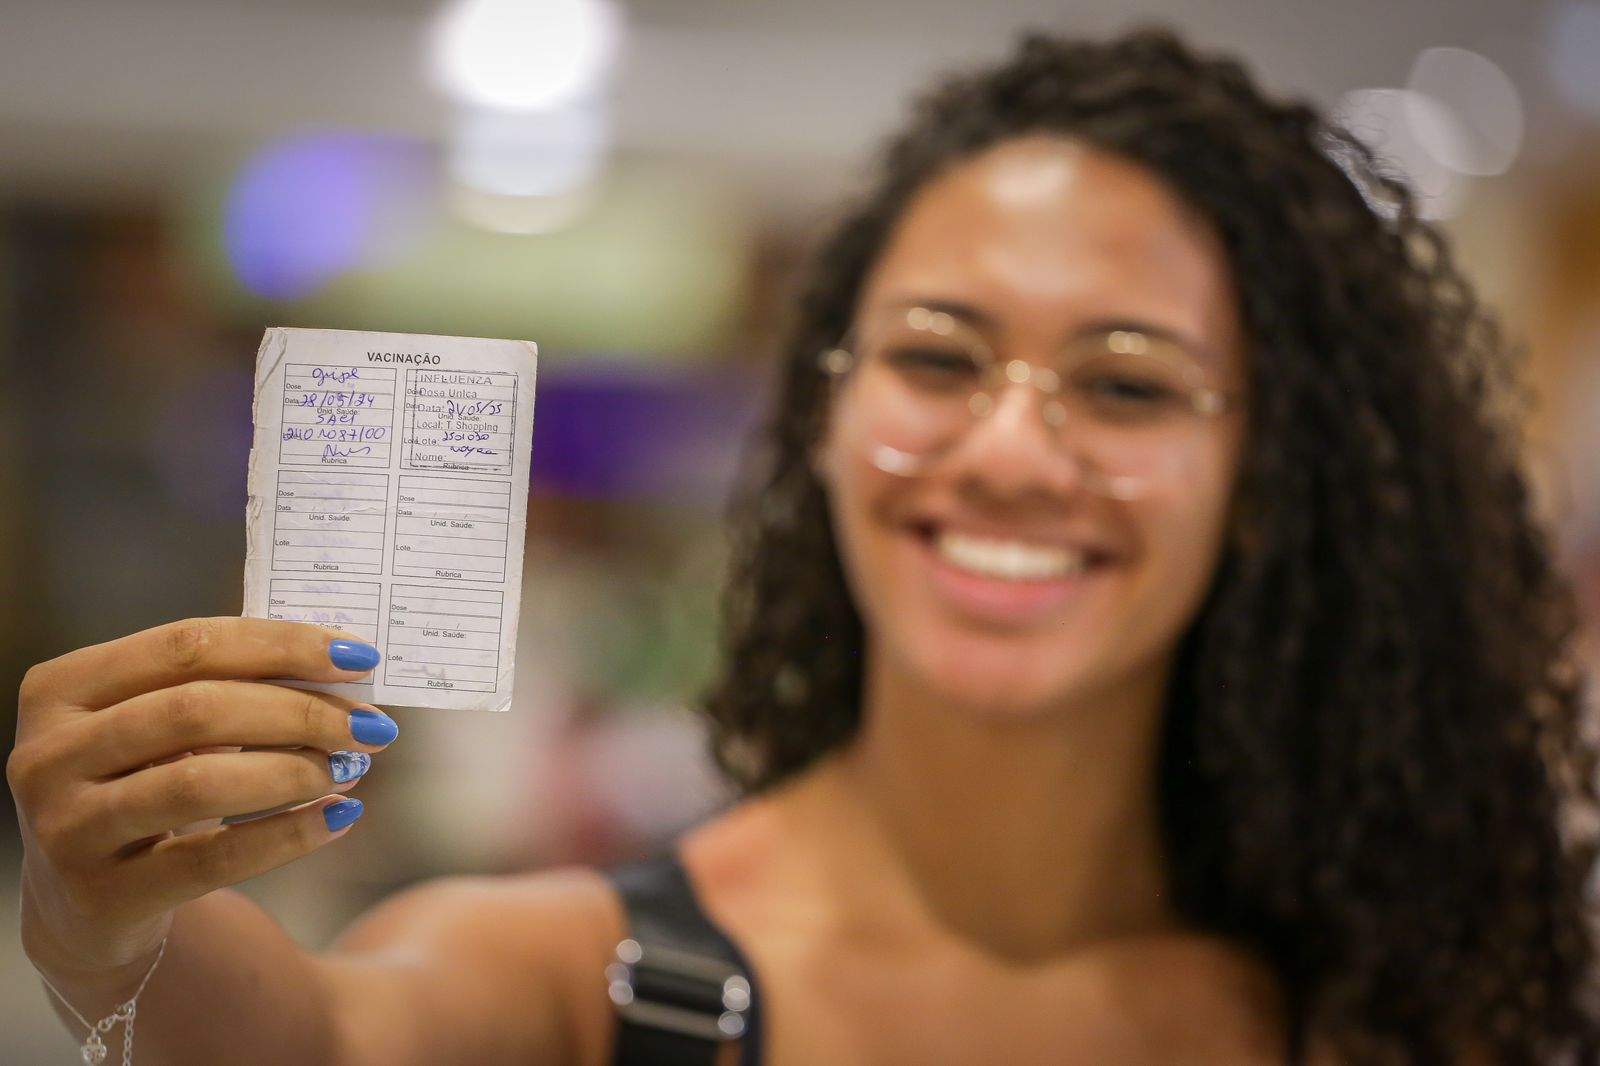 VACINAÇÃO
gripe
Dose
Data 28/05/24
Unid. Saúde:
SAE1
Lote 2401087/00
Rubrica
INFLUENZA
Dose Unica
Data: 21/05/25
Unid. Saúde:
Local: T. Shopping
Lote: 2501030
Nome:
Rubrica
Dose
Data / /
Unid. Saúde:
Lote
Rubrica
Dose
Data / /
Unid. Saúde:
Lote
Rubrica
Dose
Data / /
Saúde:
Dose
Data / /
Unid. Saúde:
Lote
Rubrica